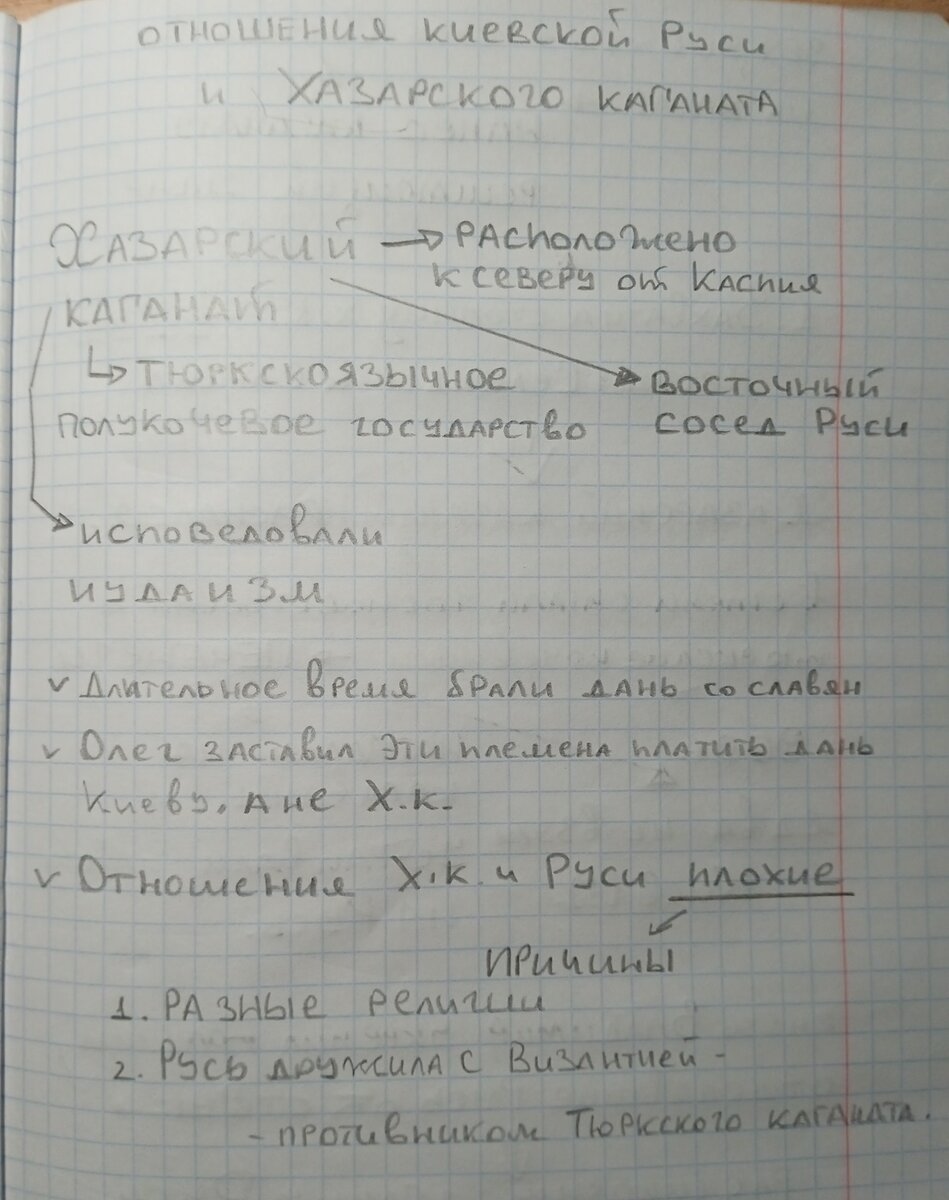 ОТНОШЕНИЯ КИЕВСКОЙ РУСИ
И ХАЗАРСКОГО КАГАНАТА
ХАЗАРСКИЙ → РАСПОЛОЖЕНО
К СЕВЕРУ ОТ КАСПИЯ
КАГАНАТ
↳ ТЮРКСКОЯЗЫЧНОЕ
ПОЛУКОЧЕВОЕ ГОСУДАРСТВО
ВОСТОЧНЫЙ
СОСЕД РУСИ
ИСПОВЕДОВАЛИ
ИУДАИЗМ
✓ Длительное время брали дань со славян
✓ Олег заставил эти племена платить дань
Киеву, а не Х.К.
✓ Отношения Х.К. и Руси плохие
ПРИЧИНЫ
1. РАЗНЫЕ РЕЛИГИИ
2. Русь дружила с Византией -
- противником Тюркского каганата.